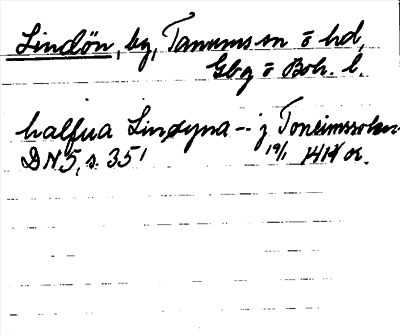 Lindön, by, Tanums sn o hd,
Gbg o Boh. l.
halfua Lindøyna -- j Toneimssokn
DN5, s. 351 19/1 1414 or.